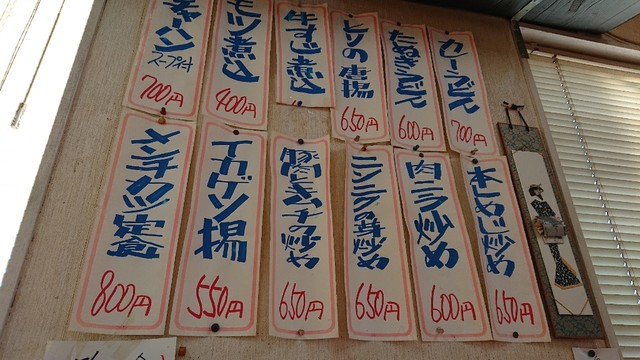 カレーうどん
700円
たぬきうどん
600円
レバの唐揚
650円
牛すじ煮込
モツ煮込
400円
チャーハン
スープ付
700円
本しめじ炒め
650円
肉ニラ炒め
600円
ニンニクの芽炒め
650円
豚肉とキムチの炒め
650円
イカゲソ揚
550円
メンチカツ定食
800円